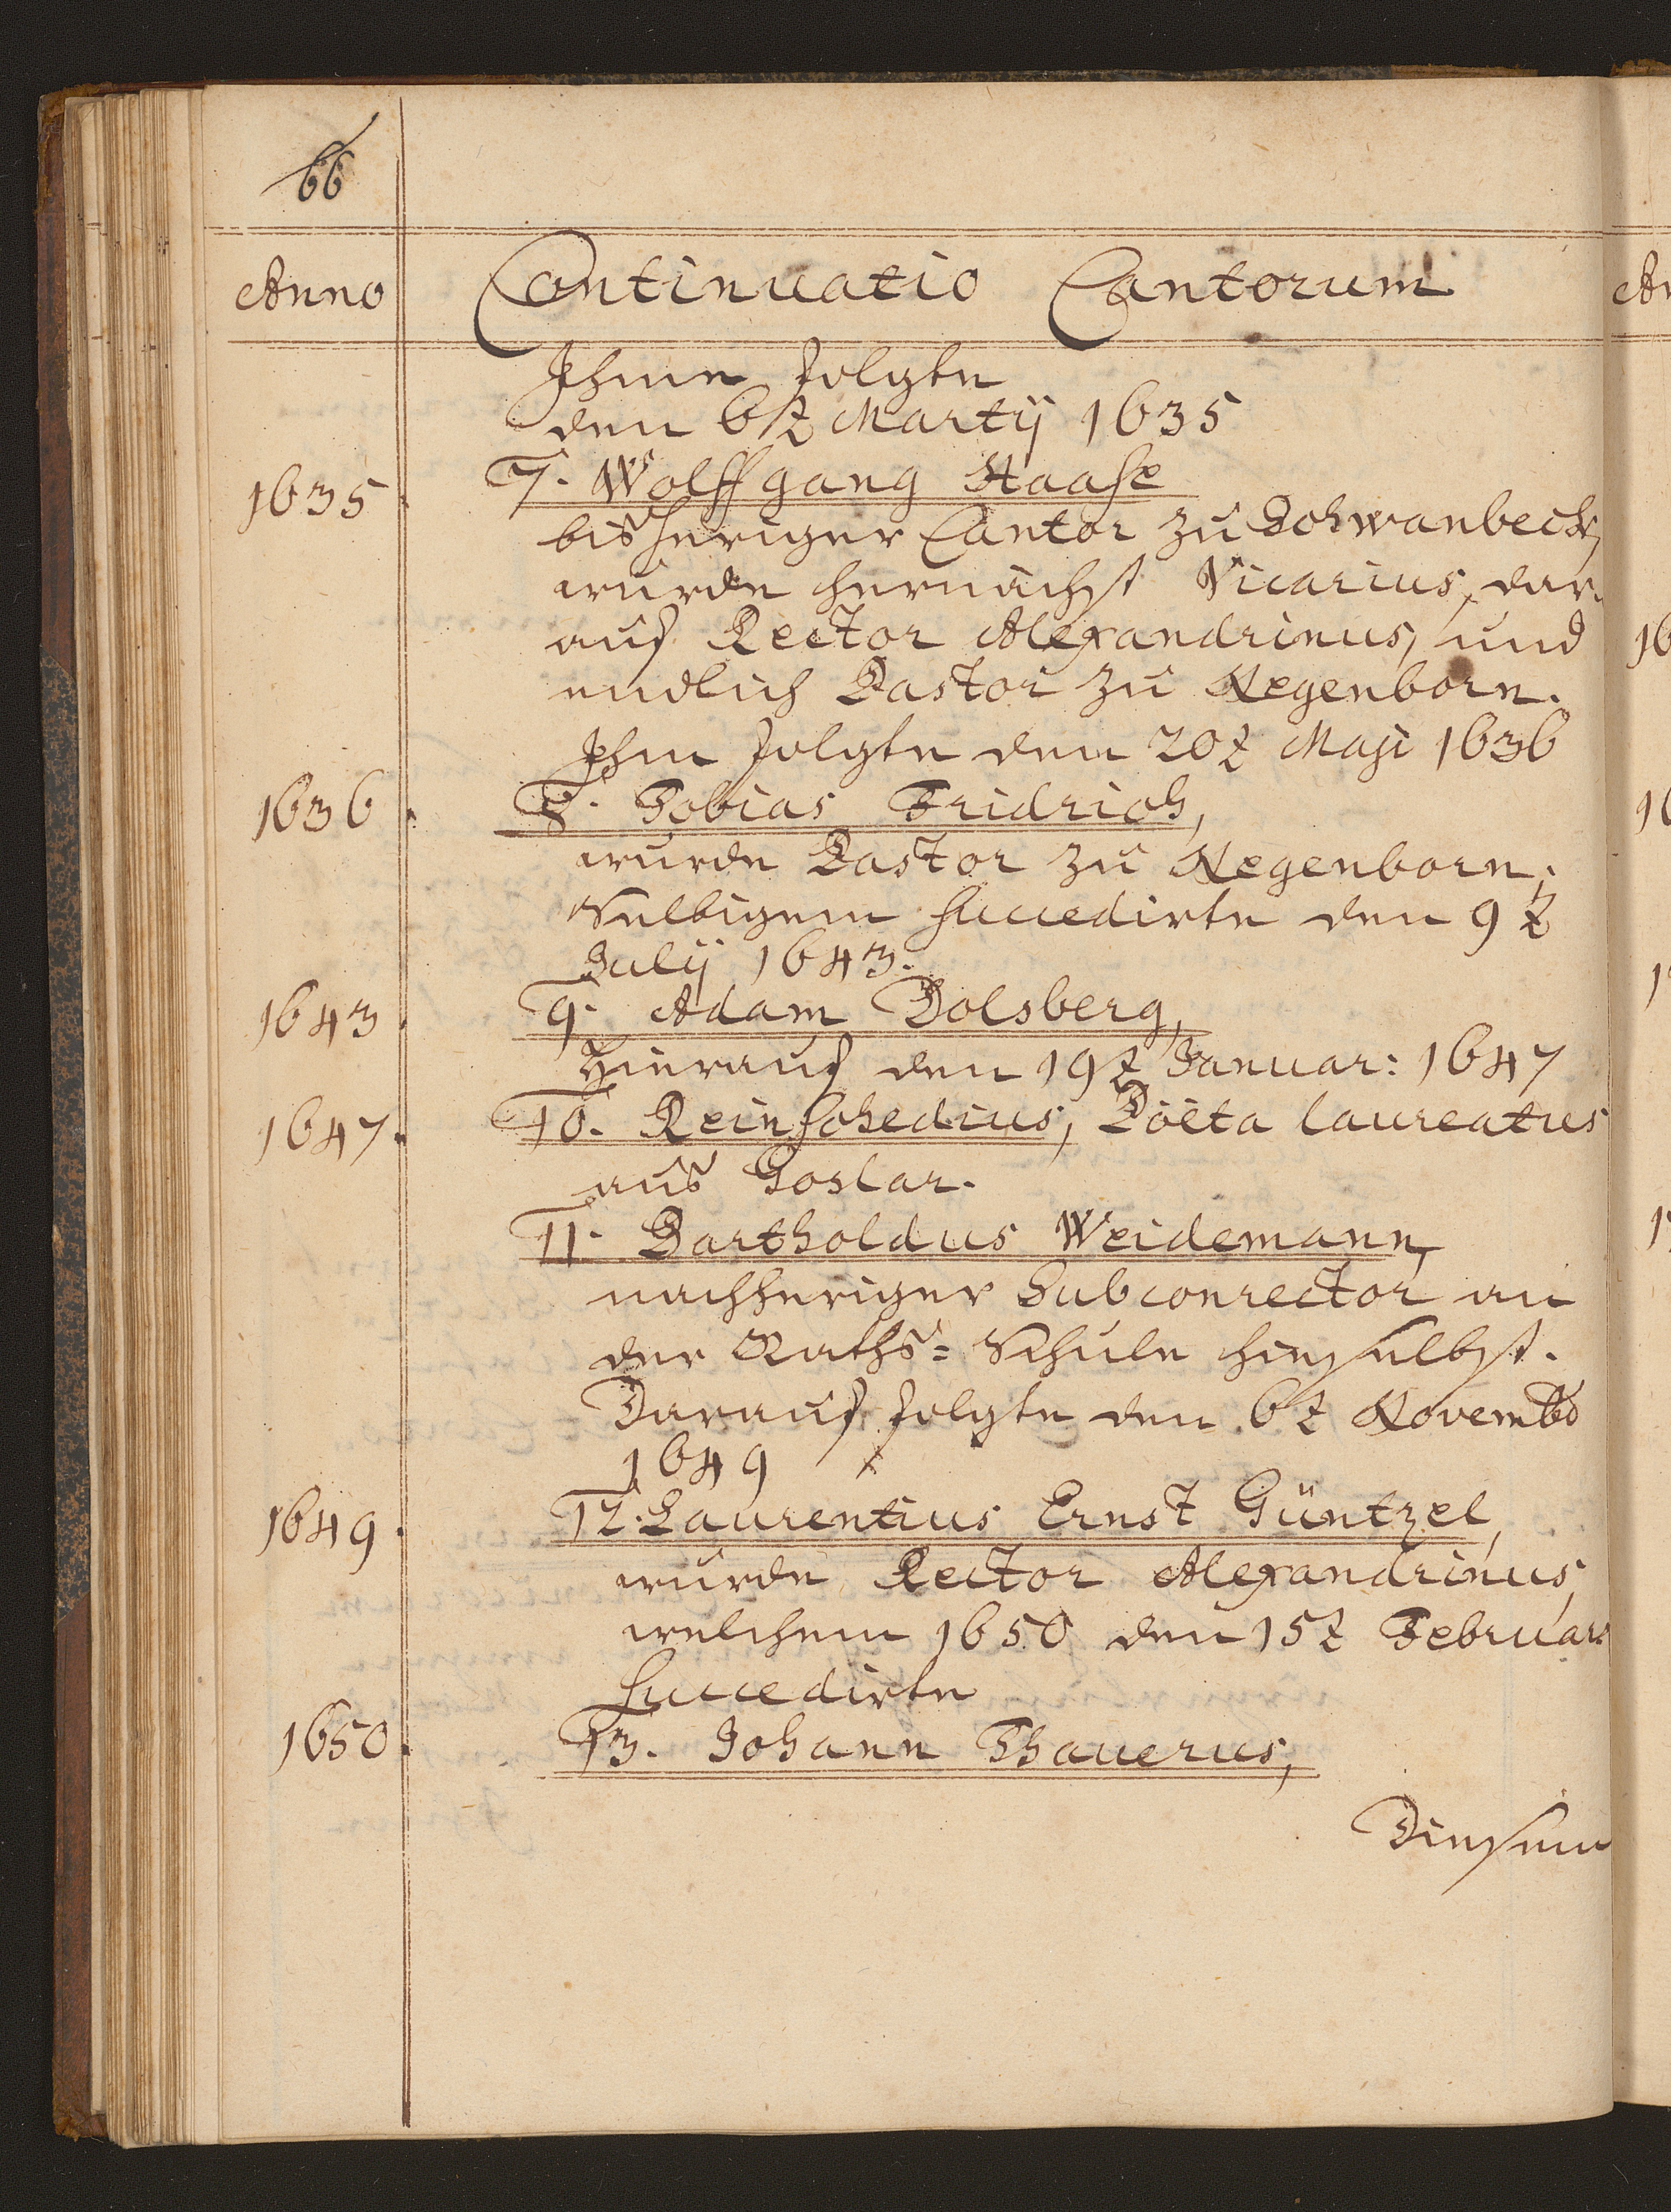 66
Anno Continuatio Cantorum
Ihme folgte
den 6t Martij 1635
1635. 7. Wolffgang Haase
bißheriger Cantor zu Schwanbeck,
wurde hernächst Vicarius, dar-
auf Rector Alexandrinus, und
endlich Pastor zu Negenborn.
Ihm folgte den 20t Maji 1636
1636. 8. Tobias Fridrich,
wurde Pastor zu Negenborn;
Selbigem succedirte den 9t
Julij 1643.
1643. 9. Adam Dolsberg,
Hierauf den 19t Januar: 1647
1647. 10. Reinschedius, Poëta laureatus
aus Goslar.
11. Bartholdus Weidemann,
nachheriger Subconrector an
der Raths=Schule hieselbst.
Darauf folgte den 6t Novembr
1649
1649. 12. Laurentius Ernst Güntzel,
wurde Rector Alexandrinus,
welchem 1650 den 15t Februar
succedirte
1650. 13. Johann Thauerus,
Diesem
An
16
16
1
1